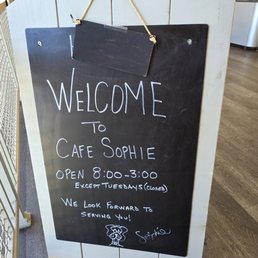 WELCOME
TO
CAFE SOPHIE
OPEN 8:00-3:00
EXCEPT TUESDAYS (CLOSED)
WE LOOK FORWARD TO
SERVING YOU!
Sophie